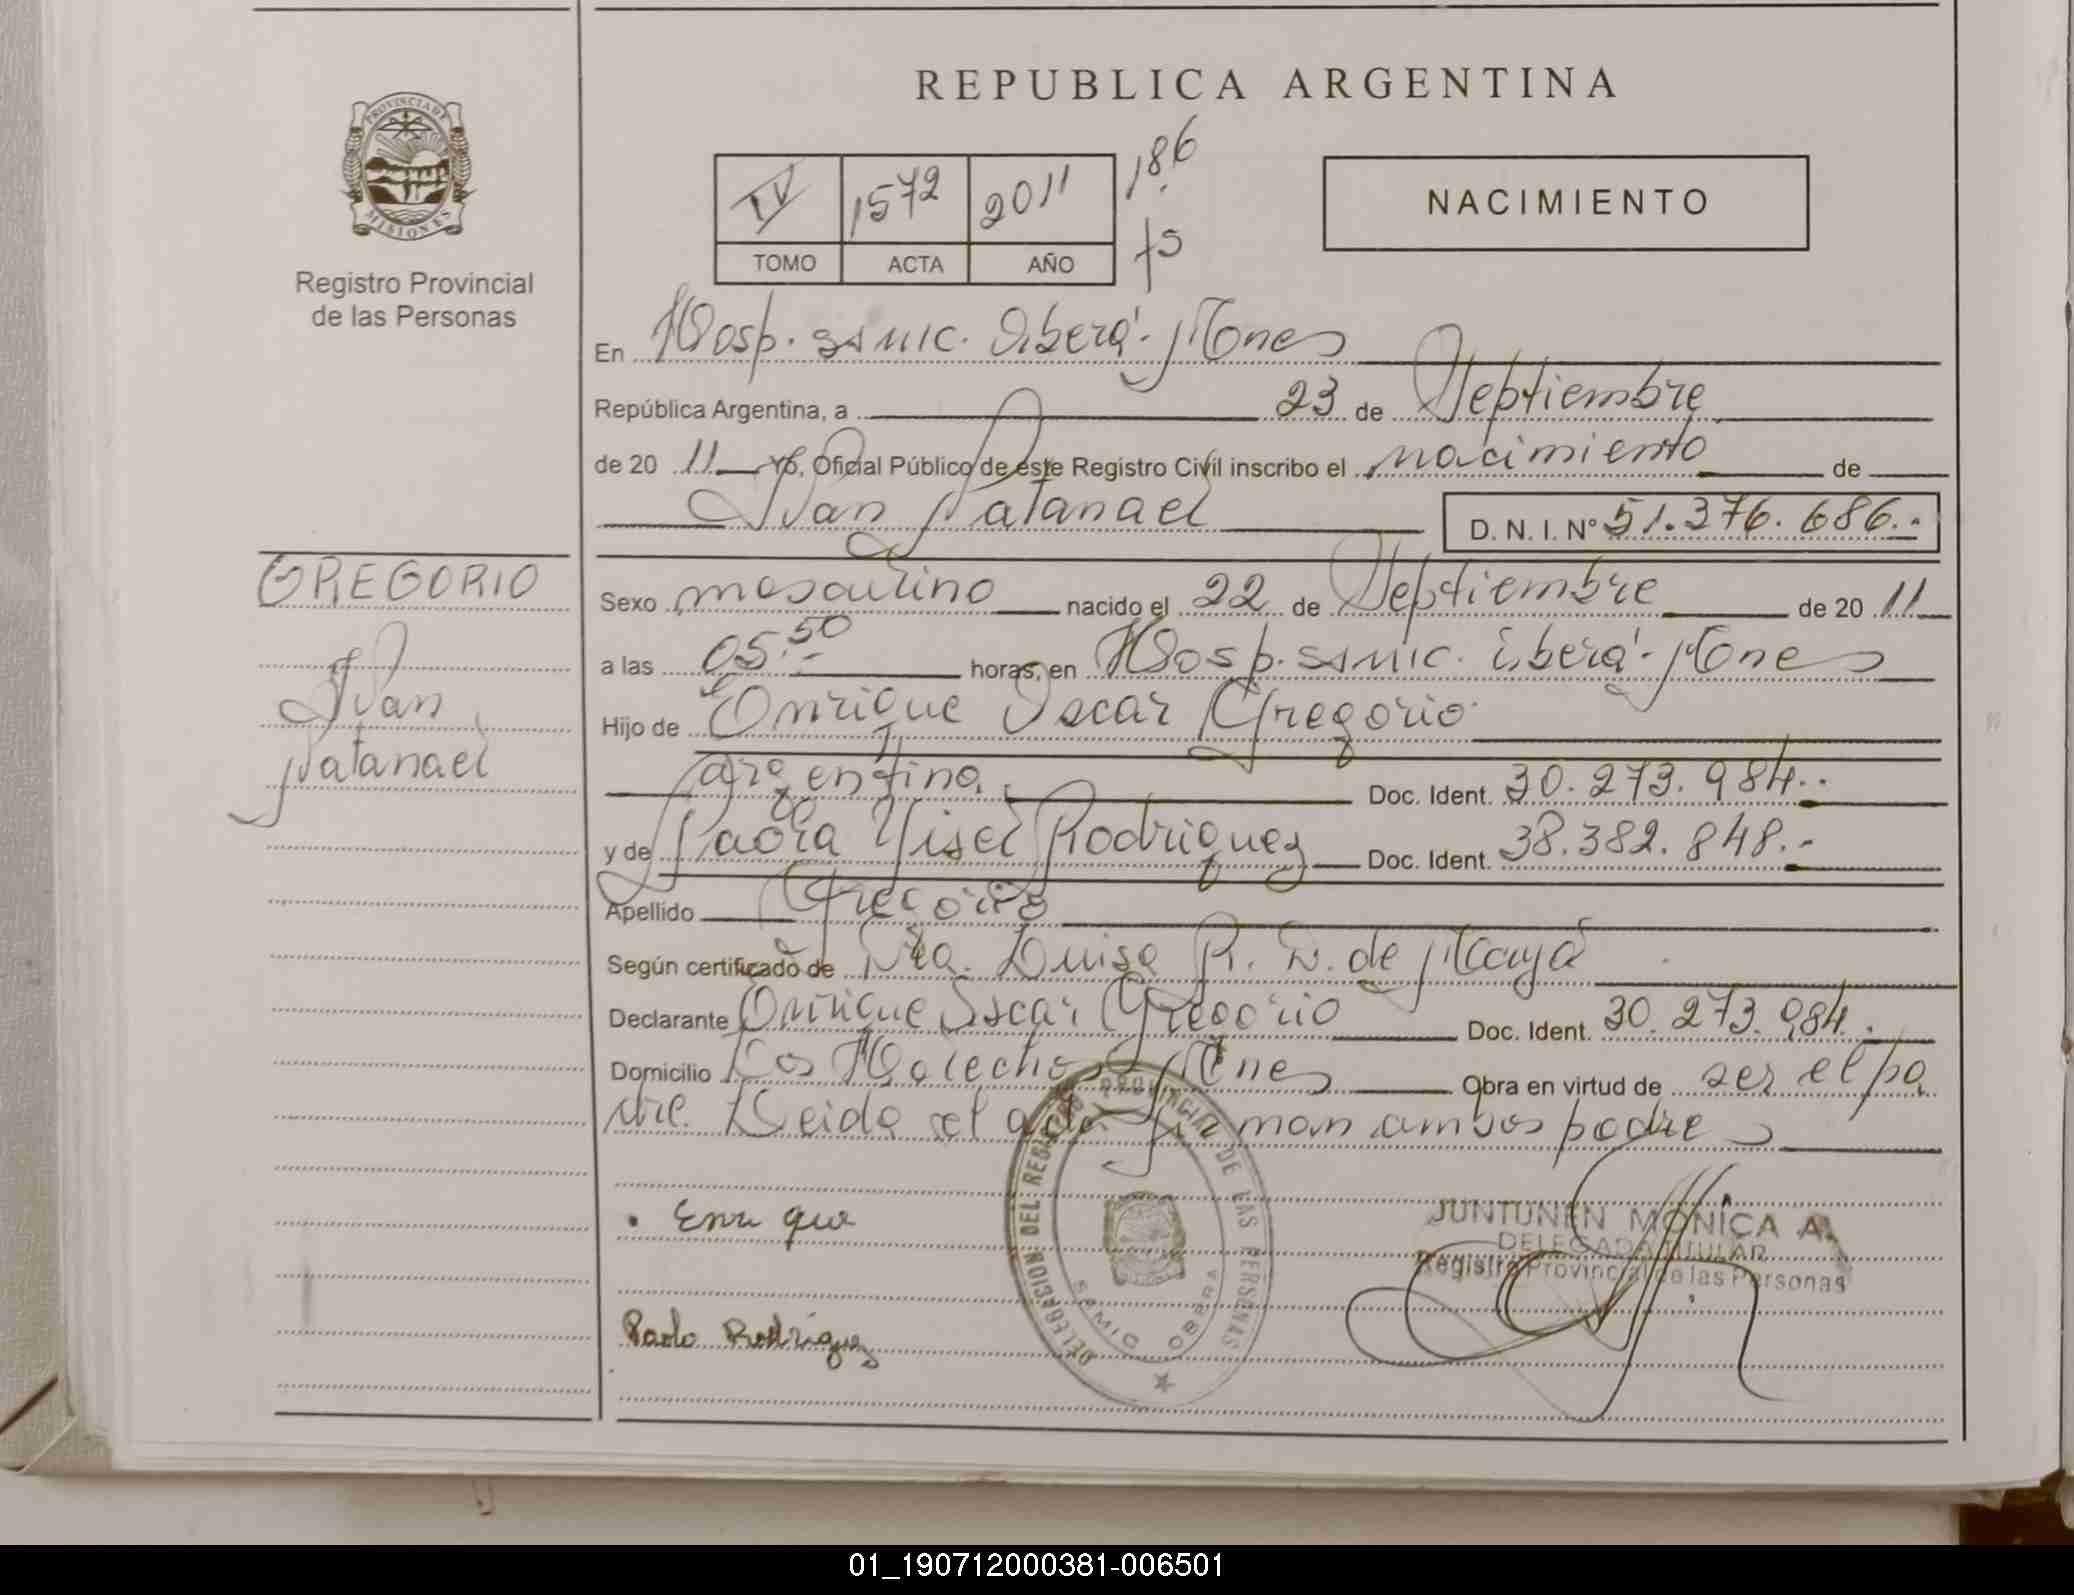 REPUBLICA ARGENTINA
PROVINCIA DE
MISIONES
Registro Provincial
de las Personas
IV 1572 2011 186
TOMO ACTA AÑO fs
NACIMIENTO
En Hosp. samic. Oberá - Mones
República Argentina, a 23 de Septiembre
de 20 11 Yo, Oficial Público de este Registro Civil inscribo el nacimiento de
Ivan Natanael D. N. I. Nº 51.376.686.-
GREGORIO
Ivan
Natanael
Sexo masculino nacido el 22 de Septiembre de 20 11
a las 05:50 horas, en Hosp. samic. Oberá - Mones
Hijo de Enrique Oscar Gregorio
argentino Doc. Ident. 30.273.984.-
y de Paola Yisel Rodriguez Doc. Ident. 38.382.848.-
Apellido Gregorio
Según certificado de Dra. Luisa R. D. de Maya
Declarante Enrique Oscar Gregorio Doc. Ident. 30.273.984.
Domicilio Los Helechos Mnes Obra en virtud de ser el pa
dre. Leida el acta firman ambos padres
Enrique
Paola Rodriguez
DELEGACION DEL REGISTRO PROVINCIAL DE LAS PERSONAS
SAMIC OBERA
JUNTUNEN MONICA A.
DELEGADA TITULAR
Registro Provincial de las Personas
01_190712000381-006501